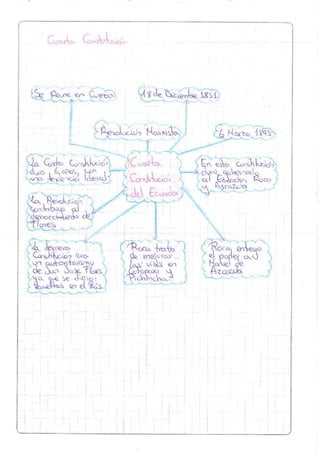 Cuarta Constitución
Se Reune en Cuenca
18 de Diciembre 1851
Revolución Marxista
6 Marzo, 1845
La Carta Constitución
duo 6, ones, con
una tendencia liberal
Cuarta
Constitución
del Ecuador
En esta constitución
gobernado
al Ecuador Roca
y Ascazubi
La Revolución
contribuyo al
derrocamiento de
Flores
la tercera
Constitución era
un autoritarismo
de Juan José Flores
ya que se
revueltas en el País
Roca trato
de mejorar
las vias en
Cotopaxi y
Pichincha
Roca, entego
el poder a
Manuel de
Ascazubi